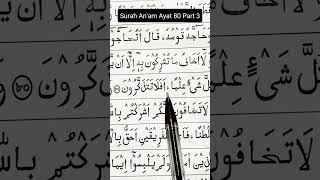 Surah An'am Ayat 80 Part 3
وَحَآجَّهٗ قَوْمُهٗ ؕ قَالَ اَتُحَآجُّوْٓ
لَاۤ اَخَافُ مَا تُشْرِكُوْنَ بِهٖۤ اِلَّاۤ اَنْ
شَىْءٍ عِلْمًا ؕ اَفَلَا تَتَذَكَّرُوْنَ ﴿۸۰﴾
لَا تَخَافُوْنَ اَنَّكُمْ اَشْرَكْتُمْ بِاللّٰهِ
الْفَرِيْقَيْنِ اَحَقُّ بِا
وَلَمْ يَلْبِسُوْۤا اِيْمَا